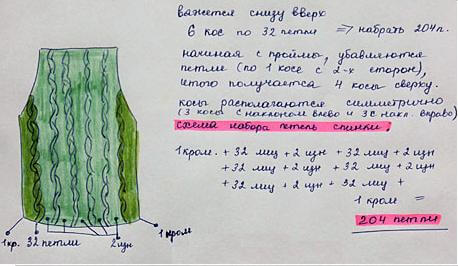 вяжется снизу вверх
6 кос по 32 петли => набрать 204 п.
начиная с проймы, убавляются
петли (по 1 косе с 2-х сторон),
итого получается 4 косы сверху.
косы располагаются симметрично
(3 косы с наклоном влево и 3 с накл. вправо)
схема набора петель спинки.
1 кром. + 32 лиц + 2 изн + 32 лиц + 2 изн
+ 32 лиц + 2 изн + 32 лиц + 2 изн
+ 32 лиц + 2 изн + 32 лиц +
1 кром =
204 петли
1 кр. 32 петли 2 изн 1 кром